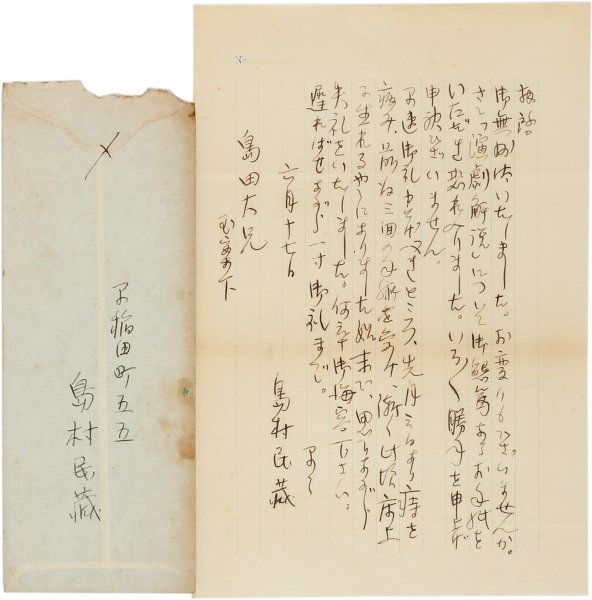 No.
拝啓
御無沙汰いたしました。お変りもございませんか。
さて「演劇解説」について御懇篤なるお手紙を
いただき恐れ入りました。いろ〱勝手を申上げ
申訳ございません。
早速御礼申上ぐべきところ、先月三日より痔を
病み、前後三回の手術を受け、漸く此頃床上
に坐れるやうになりました始末で、思ひながら
失礼をいたしました。何卒御海容下さい。
遅ればせながら一寸御礼まで。
早々
六月十七日
島村民蔵
島田大兄
玉案下
〆
早稲田町五五
島村民蔵